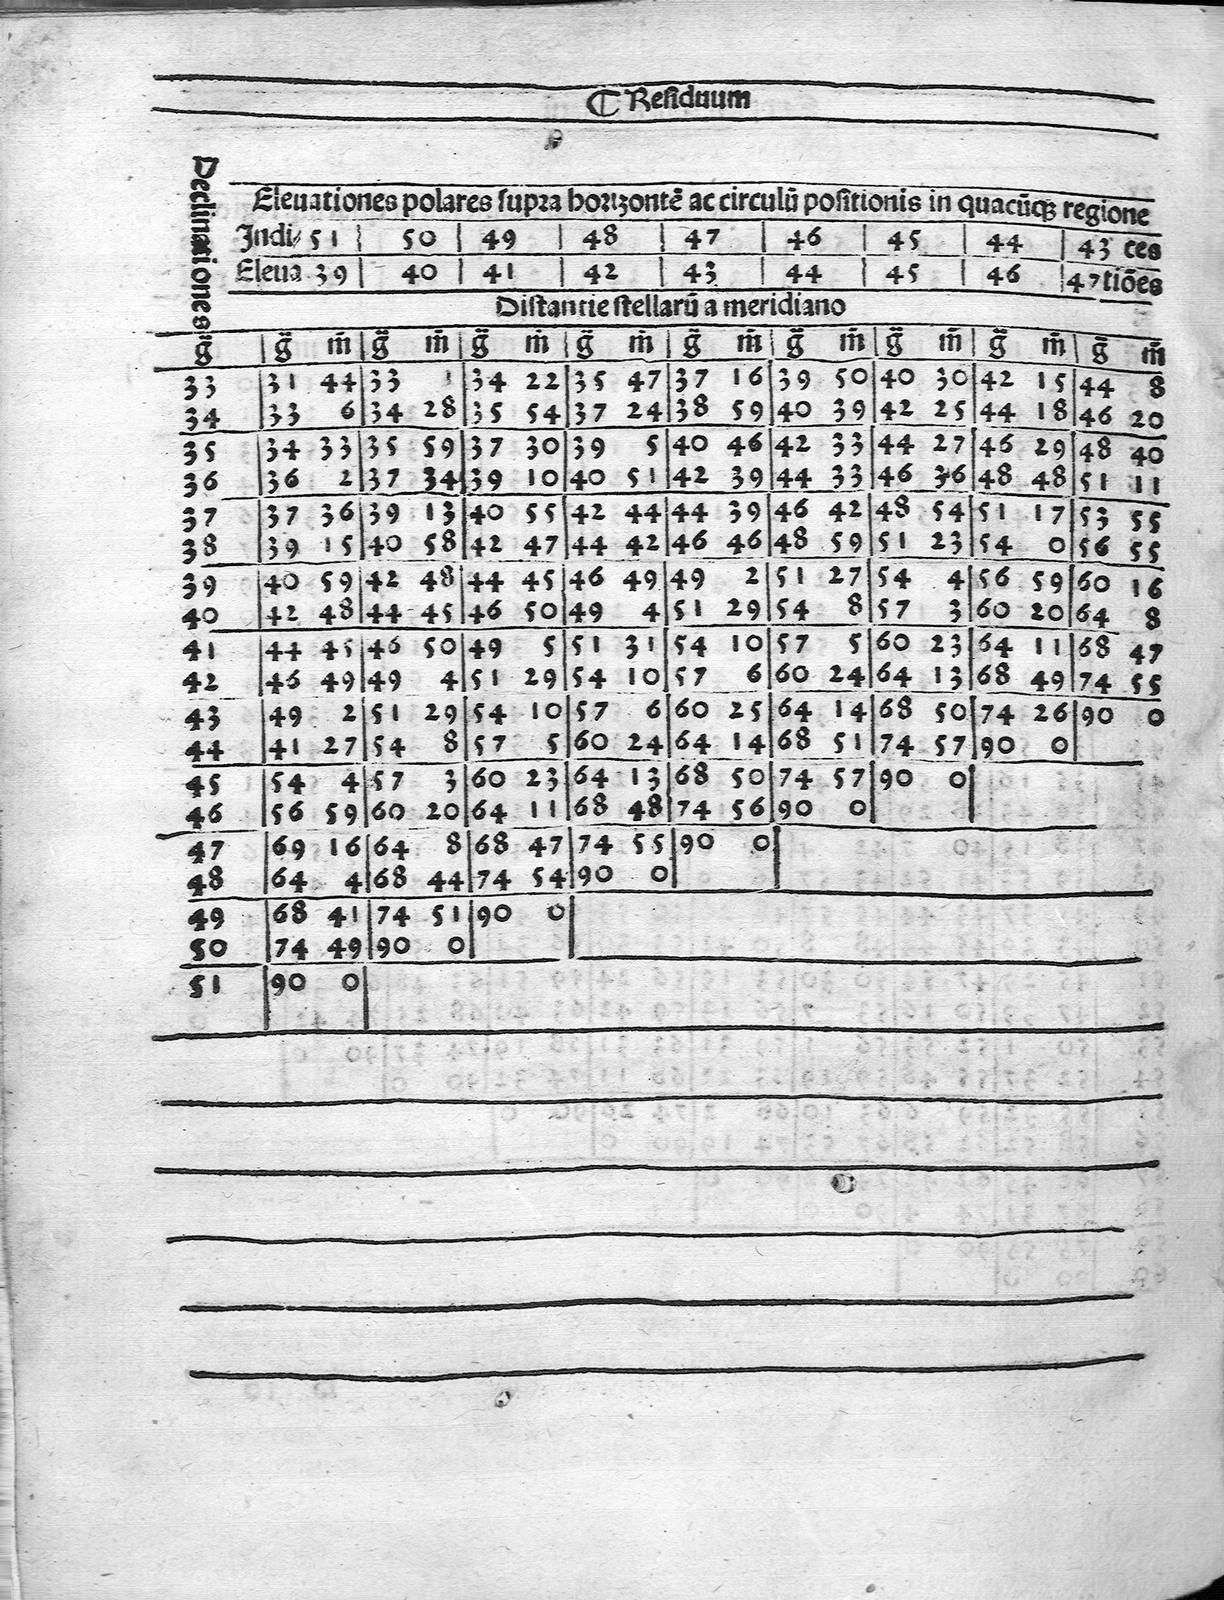 ₵ Residuum
Declinationes
Eleuationes polares supra horizontē ac circulū positionis in quacūqꝫ regione
Indi⸗ 51 | 50 | 49 | 48 | 47 | 46 | 45 | 44 | 43 ces
Eleua 39 | 40 | 41 | 42 | 43 | 44 | 45 | 46 | 47 tiōes
Distantie stellarū a meridiano
g̈ | g̈ m̄ | g̈ m̄ | g̈ m̄ | g̈ m̄ | g̈ m̄ | g̈ m̄ | g̈ m̄ | g̈ m̄ | g̈ m̄
33 | 31 44 | 33 1 | 34 22 | 35 47 | 37 16 | 39 50 | 40 30 | 42 15 | 44 8
34 | 33 6 | 34 28 | 35 54 | 37 24 | 38 59 | 40 39 | 42 25 | 44 18 | 46 20
35 | 34 33 | 35 59 | 37 30 | 39 5 | 40 46 | 42 33 | 44 27 | 46 29 | 48 40
36 | 36 2 | 37 34 | 39 10 | 40 51 | 42 39 | 44 33 | 46 36 | 48 48 | 51 11
37 | 37 36 | 39 13 | 40 55 | 42 44 | 44 39 | 46 42 | 48 54 | 51 17 | 53 55
38 | 39 15 | 40 58 | 42 47 | 44 42 | 46 46 | 48 59 | 51 23 | 54 0 | 56 55
39 | 40 59 | 42 48 | 44 45 | 46 49 | 49 2 | 51 27 | 54 4 | 56 59 | 60 16
40 | 42 48 | 44 45 | 46 50 | 49 4 | 51 29 | 54 8 | 57 3 | 60 20 | 64 8
41 | 44 45 | 46 50 | 49 5 | 51 31 | 54 10 | 57 5 | 60 23 | 64 11 | 68 47
42 | 46 49 | 49 4 | 51 29 | 54 10 | 57 6 | 60 24 | 64 13 | 68 49 | 74 55
43 | 49 2 | 51 29 | 54 10 | 57 6 | 60 25 | 64 14 | 68 50 | 74 26 | 90 0
44 | 41 27 | 54 8 | 57 5 | 60 24 | 64 14 | 68 51 | 74 57 | 90 0
45 | 54 4 | 57 3 | 60 23 | 64 13 | 68 50 | 74 57 | 90 0
46 | 56 59 | 60 20 | 64 11 | 68 48 | 74 56 | 90 0
47 | 69 16 | 64 8 | 68 47 | 74 55 | 90 0
48 | 64 4 | 68 44 | 74 54 | 90 0
49 | 68 41 | 74 51 | 90 0
50 | 74 49 | 90 0
51 | 90 0